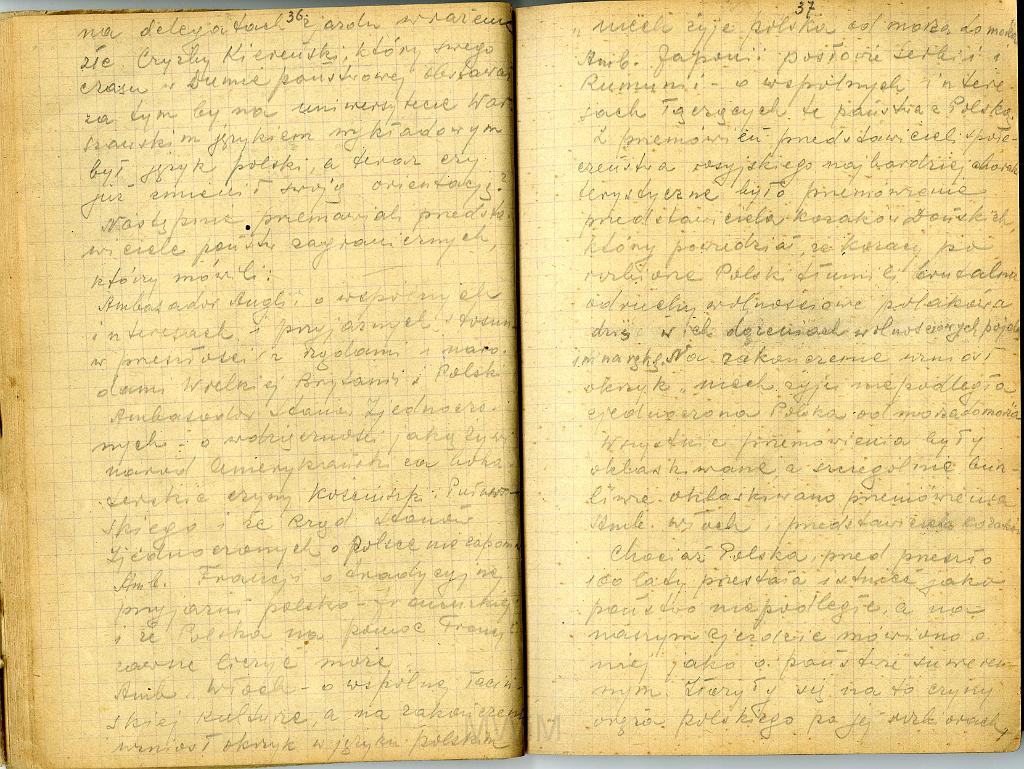 36
na delegatach zjazdu wrażenie
złe. Czyżby Kiereński, który swego
czasu w Dumie państwowej obstawał
za tym by na uniwersytecie War
szawskim językiem wykładowym
był język polski, a teraz czy
już zmienił swoją orientację?
Następnie przemawiali przedsta-
wiciele państw zagranicznych,
którzy mówili:
Ambasador Anglii o wspólnych
interesach i przyjaznych stosun
w przeszłości z rządami i naro-
dami Wielkiej Brytanii i Polski
Ambasador Stanów Zjednoczo-
nych - o wdzięczności jaką żywi
naród Amerykański za boha-
terskie czyny Kościuszki i Puław-
skiego i że Rząd Stanów
Zjednoczonych o Polsce nie zapomni
Amb. Francji o tradycyjnej
przyjaźni polsko-francuskiej
i że Polska na pomoc Francji
zawsze liczyć może
Amb. Włoch - o wspólnej łaciń-
skiej kulturze, a na zakończenie
wzniósł okrzyk w języku polskim
37
"niech żyje Polska od morza do morza
Amb. Japonii posłowie Serbii i
Rumunii - o wspólnych intere-
sach łączących te państwa z Polską.
Z przemówień przedstawicieli społe-
czeństwa rosyjskiego najbardziej charak
terystyczne było przemówienie
przedstawiciela kozaków Dońskich,
który powiedział, że kozacy po
rozbiorze Polski tłumili brutalnie
odruchy wolnościowe polaków a
dziś w ich dążeniach wolnościowych pójdą
im na rękę. Na zakończenie wzniósł
okrzyk "niech żyje niepodległa
zjednoczona Polska od morza do morza
Wszystkie przemówienia były
oklaskiwane a szczególnie bur-
liwie oklaskiwano przemówienia
Amb. Włoch i przedstawiciela kozaków
Chociaż Polska przed przeszło
100 laty przestała istnieć jako
państwo niepodległe, a na
naszym zjeździe mówiono o
niej jako o państwie suweren-
nym. Złożyły się na to czyny
oręża polskiego po jej rozbiorach,